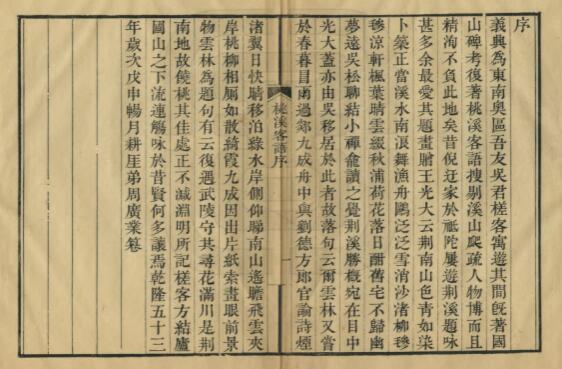 序
義興爲東南奥區吾友吳君槎客寓遊其間旣著國
山碑考復著桃溪客語搜剔溪山爬疏人物博而且
精洵不負此地矣昔倪迂家於祗陀屢遊荆溪題咏
甚多余最愛其題畫贈王光大云荆南山色青如染
卜築正當溪水南浪舞漁舟鷗泛泛雪消沙渚柳毿
毿涼軒楓葉晴雲綴秋浦荷花落日酣舊宅不歸幽
夢遠吳松聊結小禪龕讀之覺荆溪勝概宛在目中
光大蓋亦由吳移居於此者故落句云爾雲林又嘗
於春暮目雨過郊九成舟中與劉德方郎官論詩煙
桃溪客語序
一
渚翼日快晴移泊綠水岸側仰聯南山遙瞻飛雲夾
岸桃柳相厠如散綺霞九成因出片紙索畫眼前景
物雲林爲題句有云復遇武陵守其尋花滿川是荆
南地故饒桃其佳處正不減淵明所記槎客方結廬
國山之下流連觴咏於昔賢何多讓焉乾隆五十三
年歲次戊申暢月耕厓弟周廣業篹